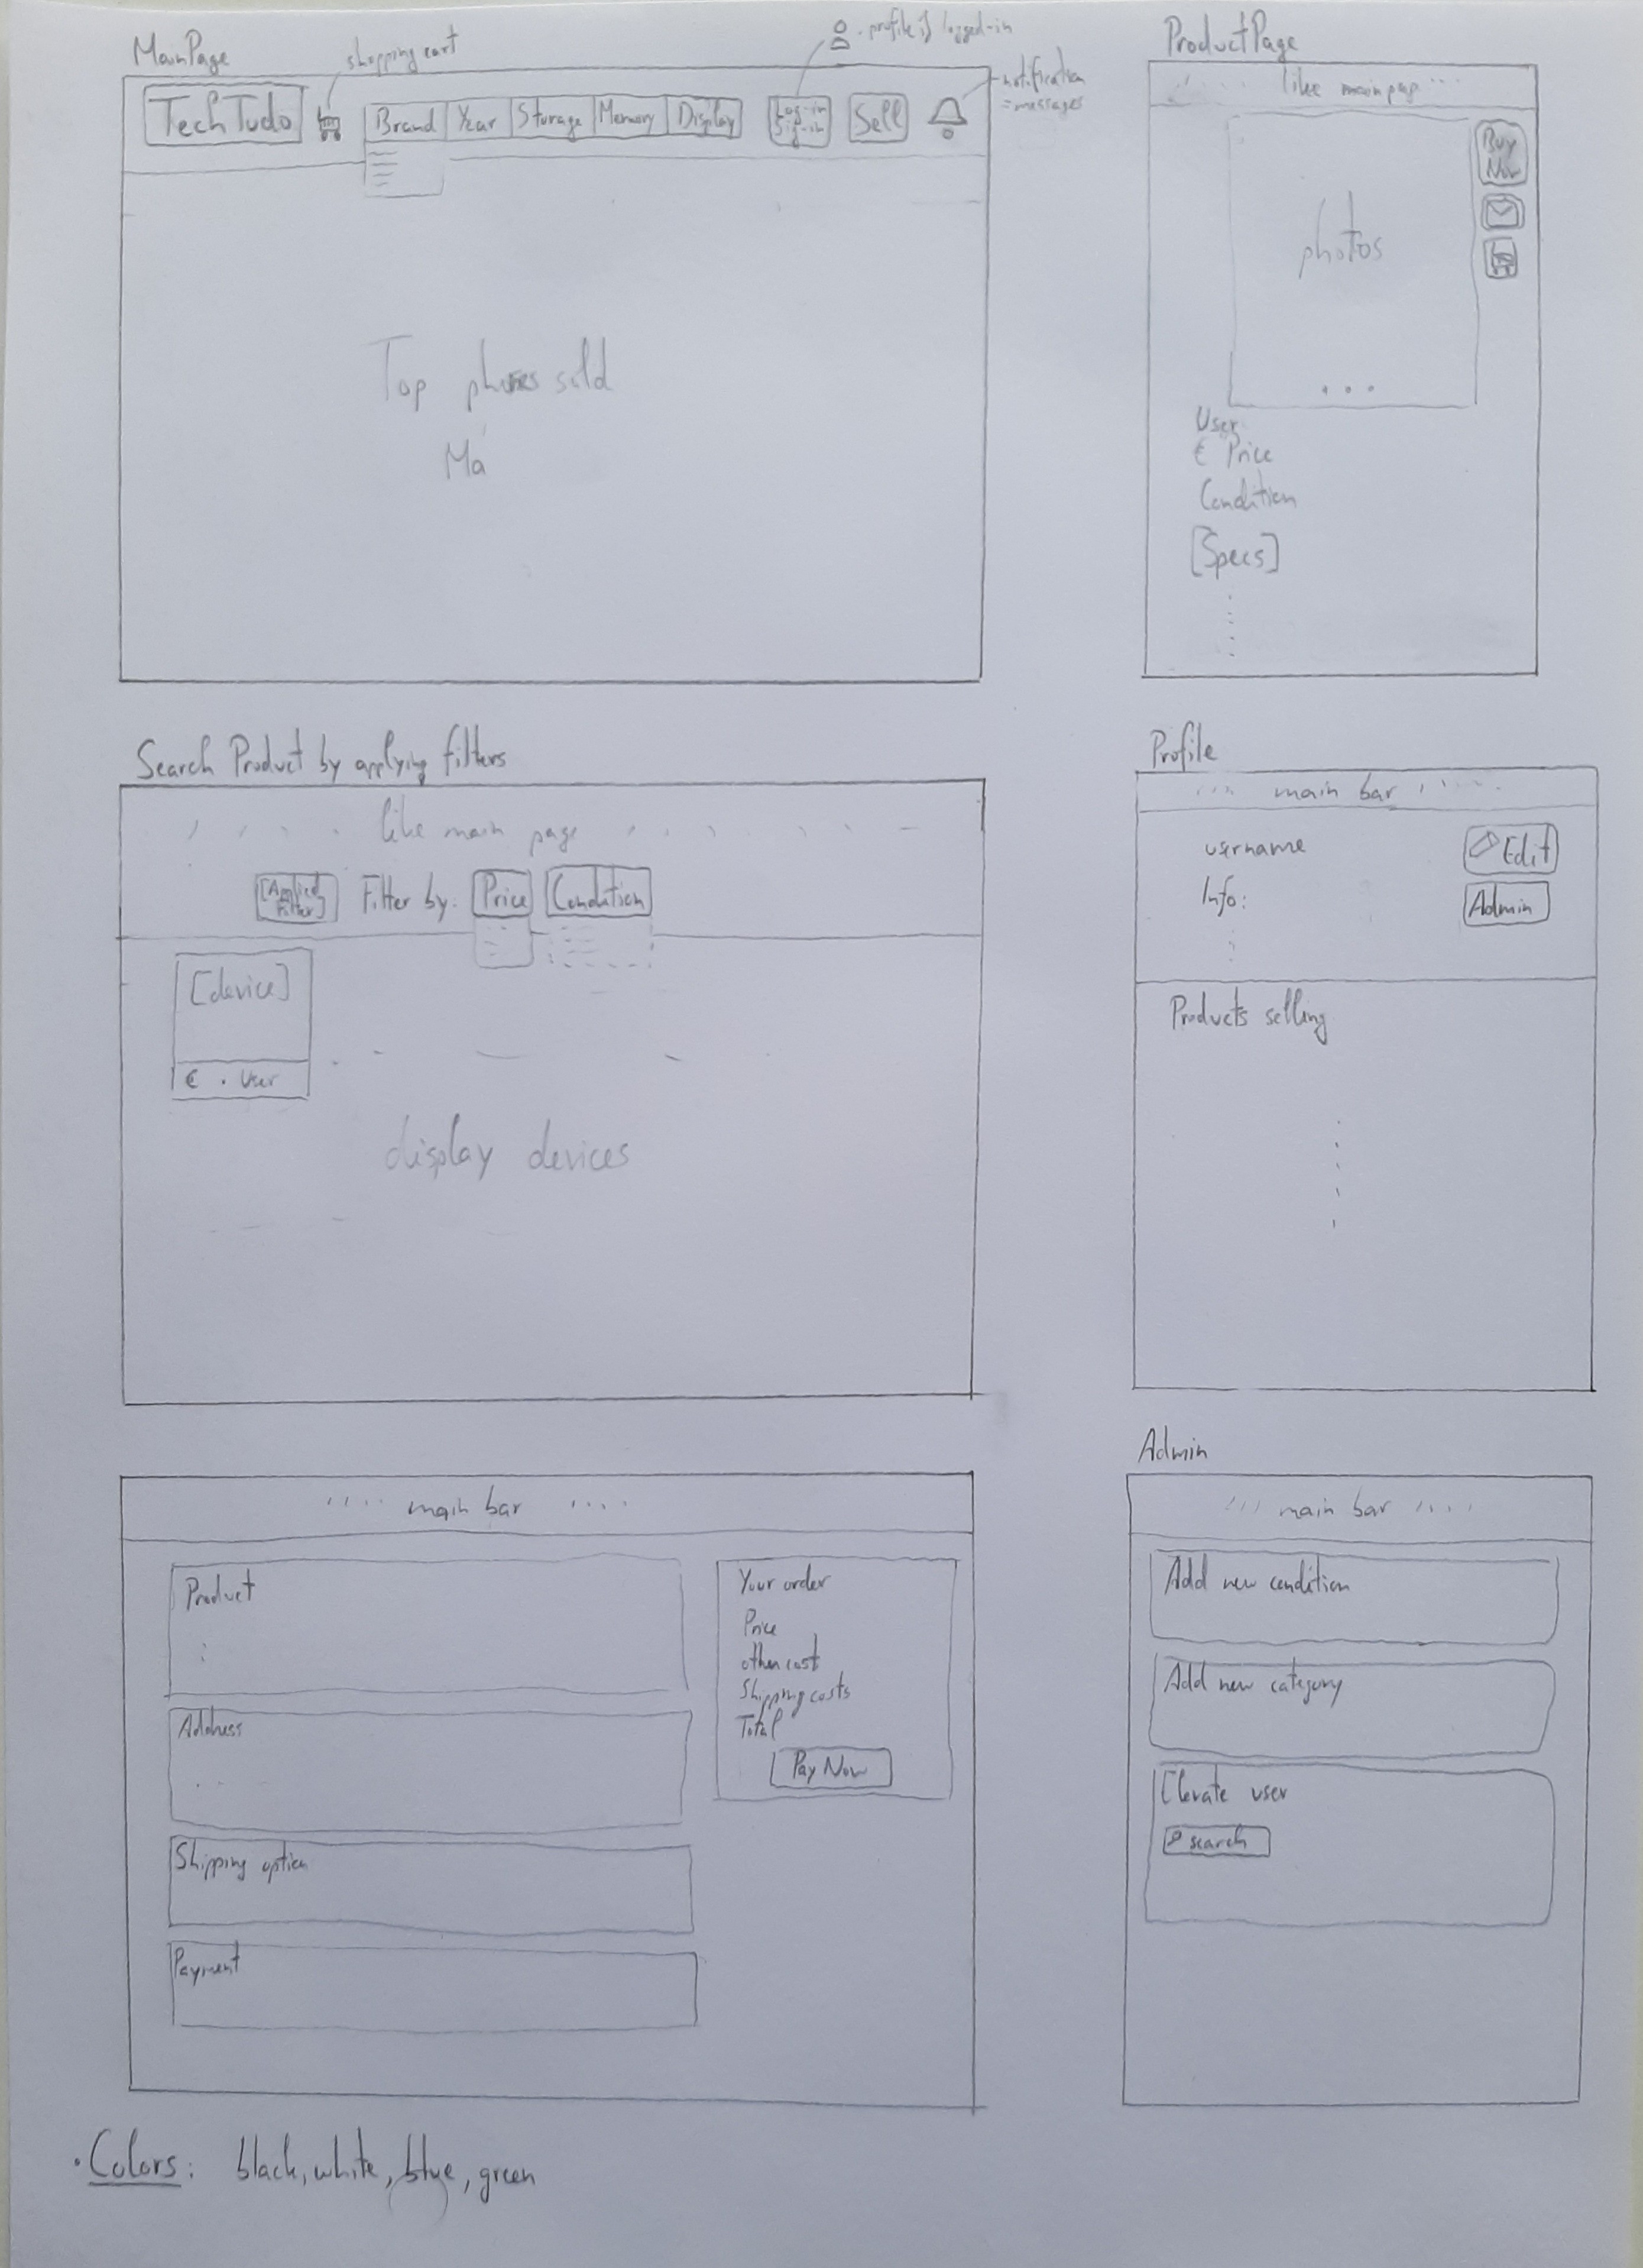 MainPage
shopping cart
profile if logged-in
notification
= messages
TechTudo
Brand
Year
Storage
Memory
Display
Log-in
Sig-in
Sell
Top phones sold
Ma
ProductPage
like main pag
Buy
Now
photos
...
User
€ Price
Condition
[Specs]
Search Product by applying filters
like main page
[Applied
Filter]
Filter by:
Price
Condition
[device]
€ . User
display devices
Profile
main bar
username
Edit
Info:
Admin
Products selling
main bar
Product
Address
Shipping option
Payment
Your order
Price
other cost
Shipping costs
Total
Pay Now
Admin
main bar
Add new condition
Add new category
Elevate user
search
• Colors: black, white, blue, green